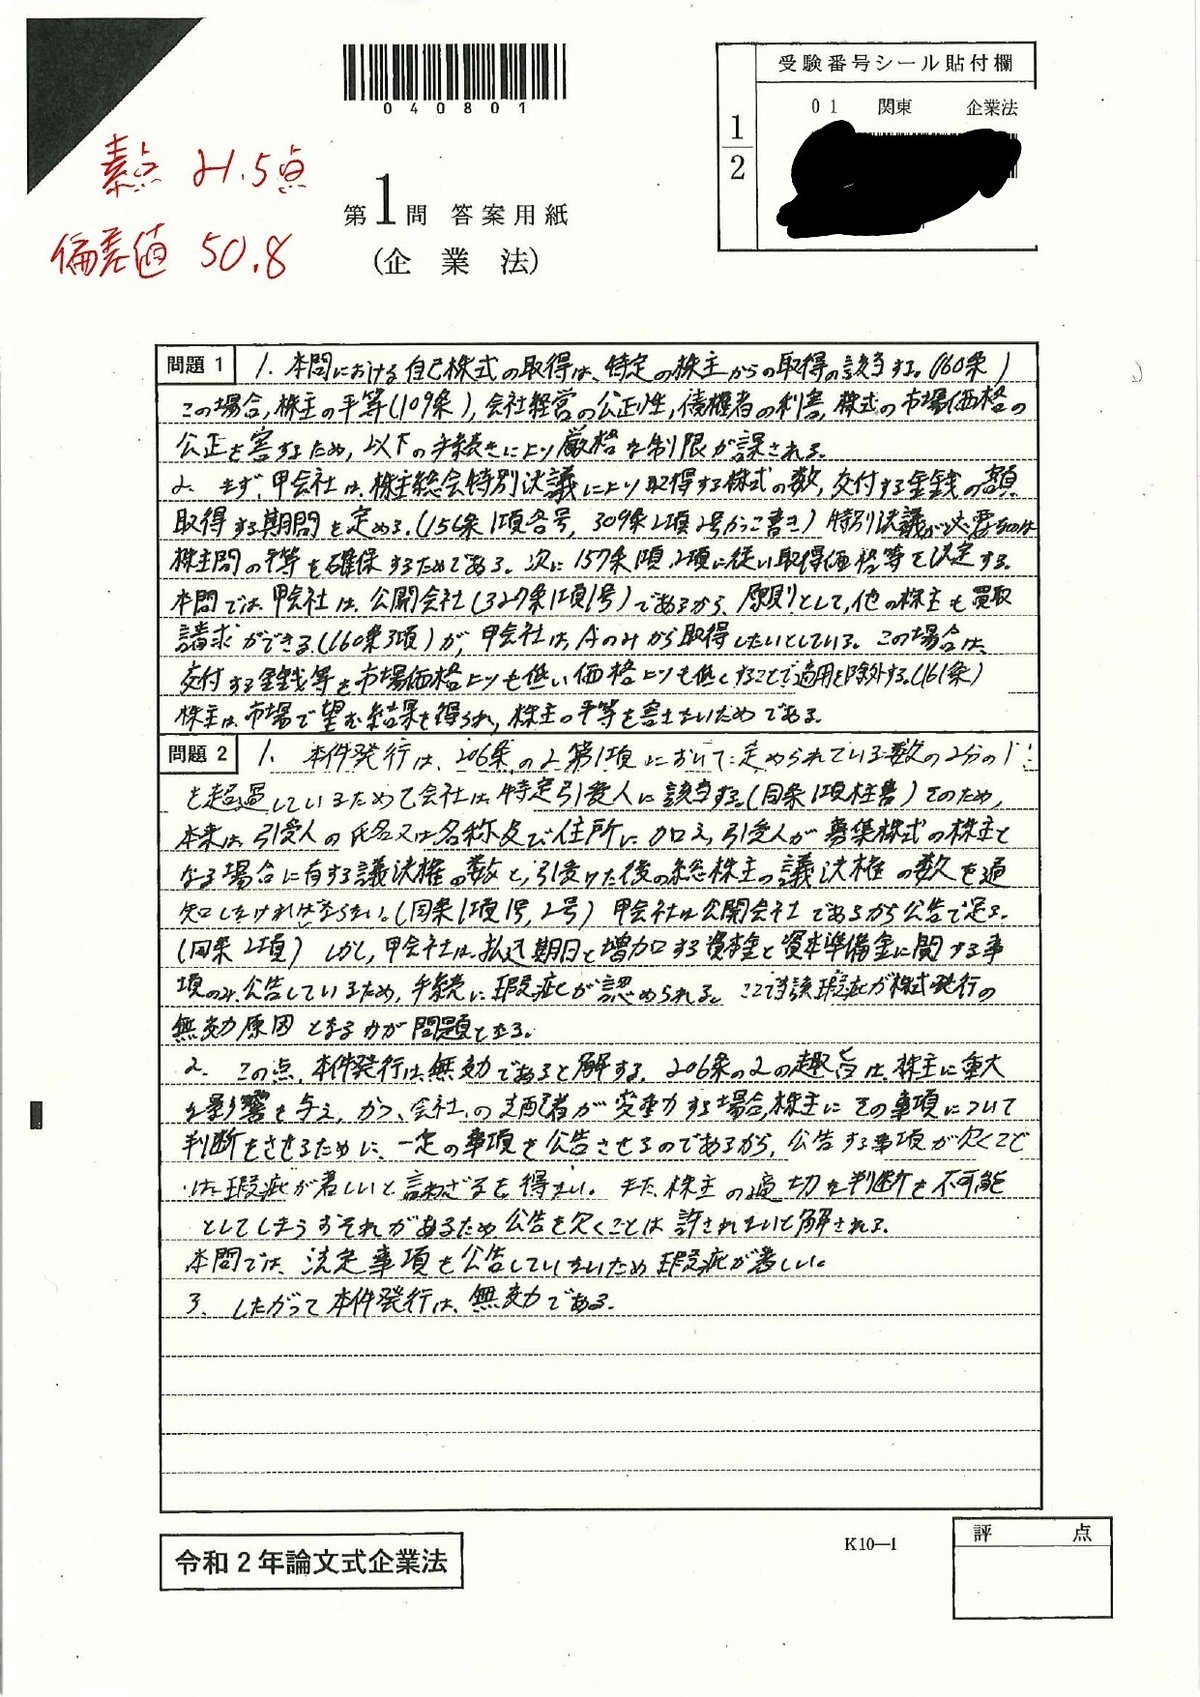 040801
受験番号シール貼付欄
1/2
01 関東 企業法
素点 21.5点
偏差値 50.8
第1問 答案用紙
(企業法)
問題1
1. 本問における自己株式の取得は、特定の株主からの取得の該当する。(160条)
この場合、株主の平等(109条)、会社経営の公正性、債権者の利害、株式の市場価格の
公正を害するため、以下の手続きにより厳格な制限が課される。
2. まず、甲会社は、株主総会特別決議により取得する株式の数、交付する金銭の額
取得する期間を定める。(156条1項各号、309条2項2号かっこ書き) 特別決議が必要なのは
株主間の平等を確保するためである。次に157条1項、2項に従い取得価格等を決定する。
本問では、甲会社は、公開会社(327条1項1号)であるから、原則として、他の株主も買取
請求ができる(160条3項)が、甲会社は、Aのみから取得したいとしている。この場合は、
交付する金銭等を市場価格よりも低い価格よりも低くすることで適用を除外する。(161条)
株主は、市場で望む結果を得られ、株主の平等を害さないためである。
問題2
1. 本件発行は、206条の2第1項において定められている数の2分の1
を超過しているため乙会社は、特定引受人に該当する。(同条1項柱書) そのため、
本来は、引受人の氏名又は名称及び住所に加え、引受人が募集株式の株主と
なる場合に有する議決権の数と、引受けた後の総株主の議決権の数を通
知しなければならない。(同条1項1号、2号) 甲会社は公開会社であるから公告で足る。
(同条2項) しかし、甲会社は、払込期日と増加する資本金と資本準備金に関する事
項のみ、公告しているため、手続に瑕疵が認められる。ここで当該瑕疵が株式発行の
無効原因となるかが問題となる。
2. この点、本件発行は、無効であると解する。206条の2の趣旨は、株主に重大
な影響を与え、かつ、会社の支配者が変動する場合、株主にその事項について
判断をさせるために、一定の事項を公告させるのであるから、公告する事項が欠くことで
は、瑕疵が著しいと言わざるを得ない。また、株主の適切な判断を不可能
としてしまうおそれがあるため公告を欠くことは許されないと解される。
本問では、法定事項を公告していないため瑕疵が著しい。
3. したがって本件発行は、無効である。
令和2年論文式企業法
K10—1
評点